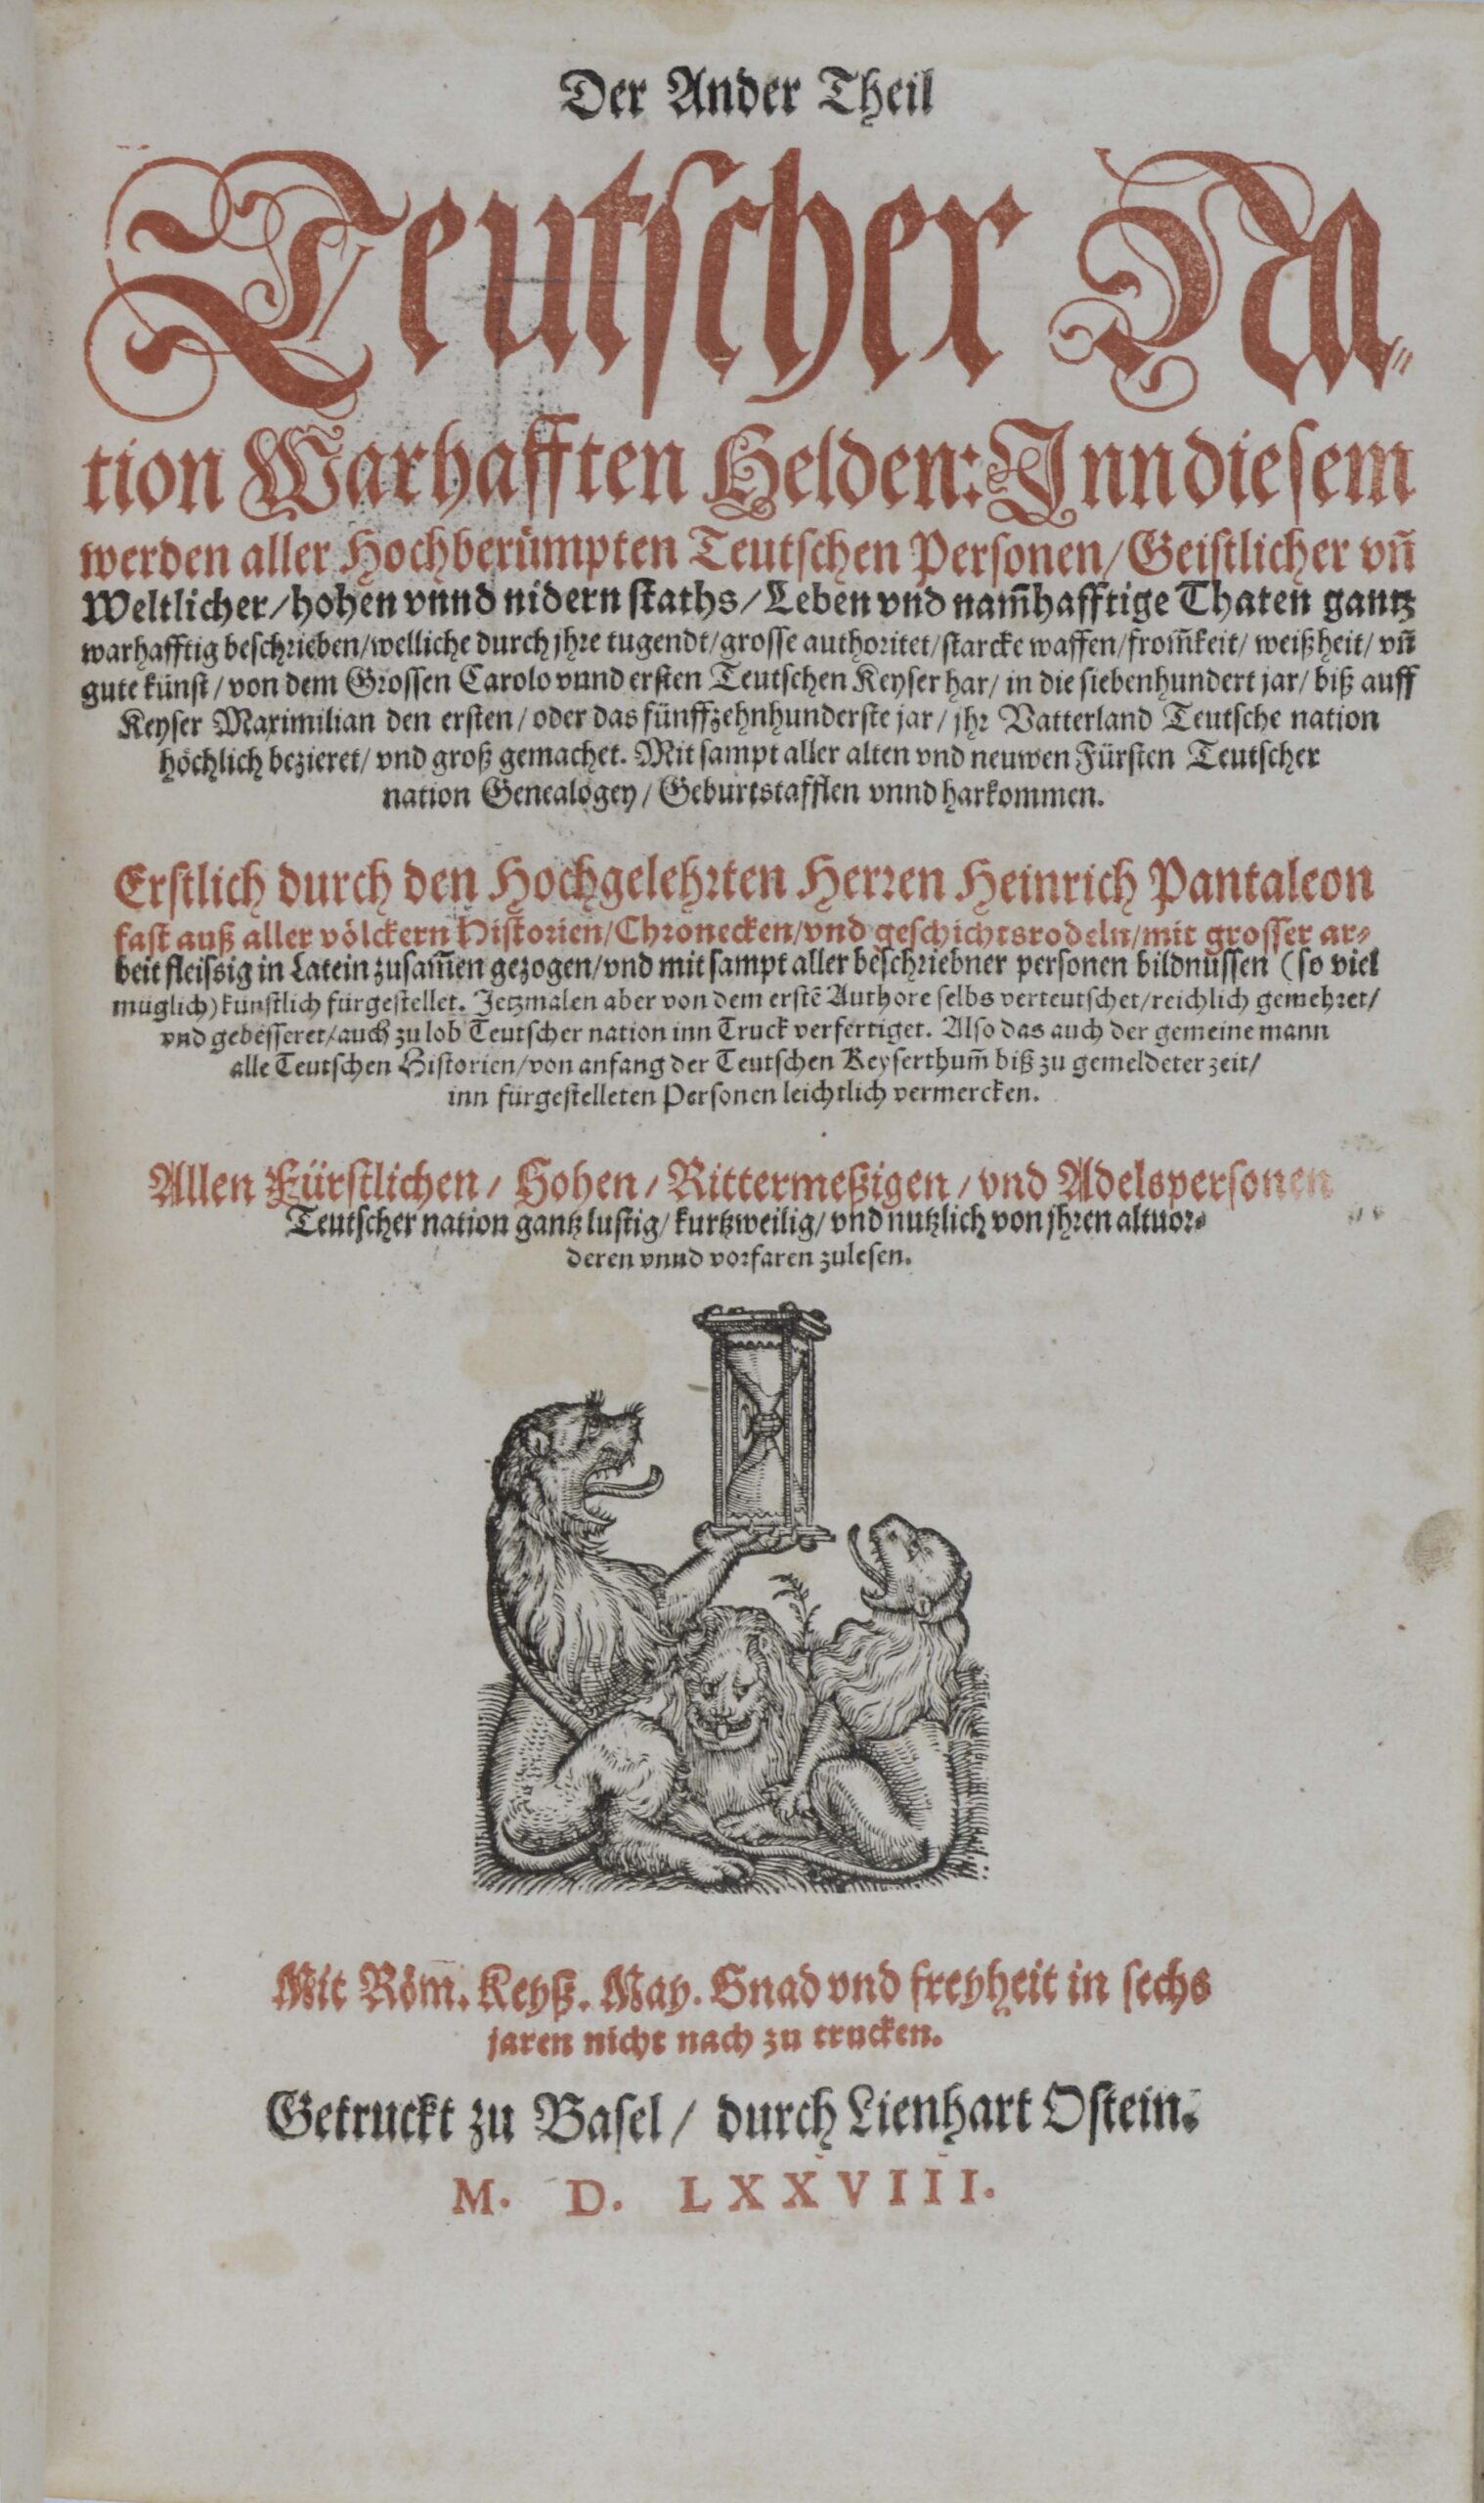 Der Ander Theil
Teutscher Na⸗
tion Warhafften Helden: Inn diesem
werden aller Hochberümpten Teutschen Personen/ Geistlicher vn̄
Weltlicher/ hohen vnnd nidern staths/ Leben vnd nam̄hafftige Thaten gantz
warhafftig beschrieben/ welliche durch jhre tugendt/ grosse authoritet/ starcke waffen/ from̄keit/ weißheit/ vn̄
gute künst/ von dem Grossen Carolo vnnd ersten Teutschen Keyser har/ in die siebenhundert jar/ biß auff
Keyser Maximilian den ersten/ oder das fünffzehnhunderste jar/ jhr Vatterland Teutsche nation
höchlich bezieret/ vnd groß gemachet. Mit sampt aller alten vnd neuwen Fürsten Teutscher
nation Genealogey/ Geburtstafflen vnnd harkommen.
Erstlich durch den Hochgelehrten Herren Heinrich Pantaleon
fast auß aller völckern Historien/ Chronecken/ vnd geschichtsrodeln/ mit grosser ar⸗
beit fleissig in Latein zusam̄en gezogen/ vnd mit sampt aller beschriebner personen bildnussen (so viel
muglich) künstlich fürgestellet. Jetzmalen aber von dem erstē Authore selbs verteutschet/ reichlich gemehret/
vnd gebesseret/ auch zu lob Teutscher nation inn Truck verfertiget. Also das auch der gemeine mann
alle Teutschen Historien/ von anfang der Teutschen Keyserthum̄ biß zu gemeldeter zeit/
inn fürgestelleten Personen leichtlich vermercken.
Allen Fürstlichen/ Hohen/ Rittermeßigen/ vnd Adelspersonen
Teutscher nation gantz lustig/ kurtzweilig/ vnd nutzlich von jhren altuor⸗
deren vnnd vorfaren zulesen.
Mit Röm̄. Keyß. May. Gnad vnd freyheit in sechs
jaren nicht nach zu trucken.
Getruckt zu Basel/ durch Lienhart Ostein.
M. D. LXXVIII.